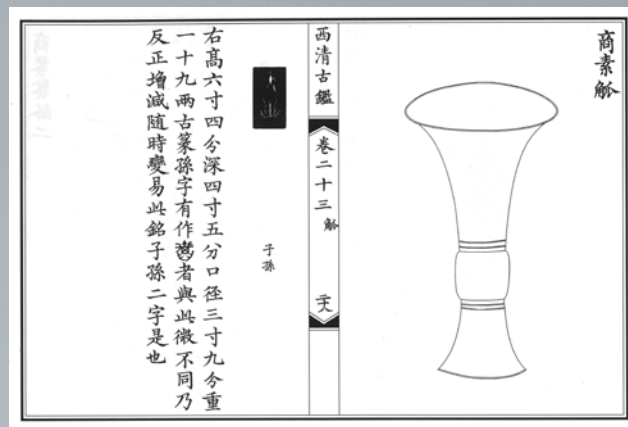 商素觚
西清古鑑
卷二十三 觚
子孫
右高六寸四分深四寸五分口徑三寸九分重
一十九兩古篆孫字有作者與此微不同乃
反正增減隨時變易此銘子孫二字是也